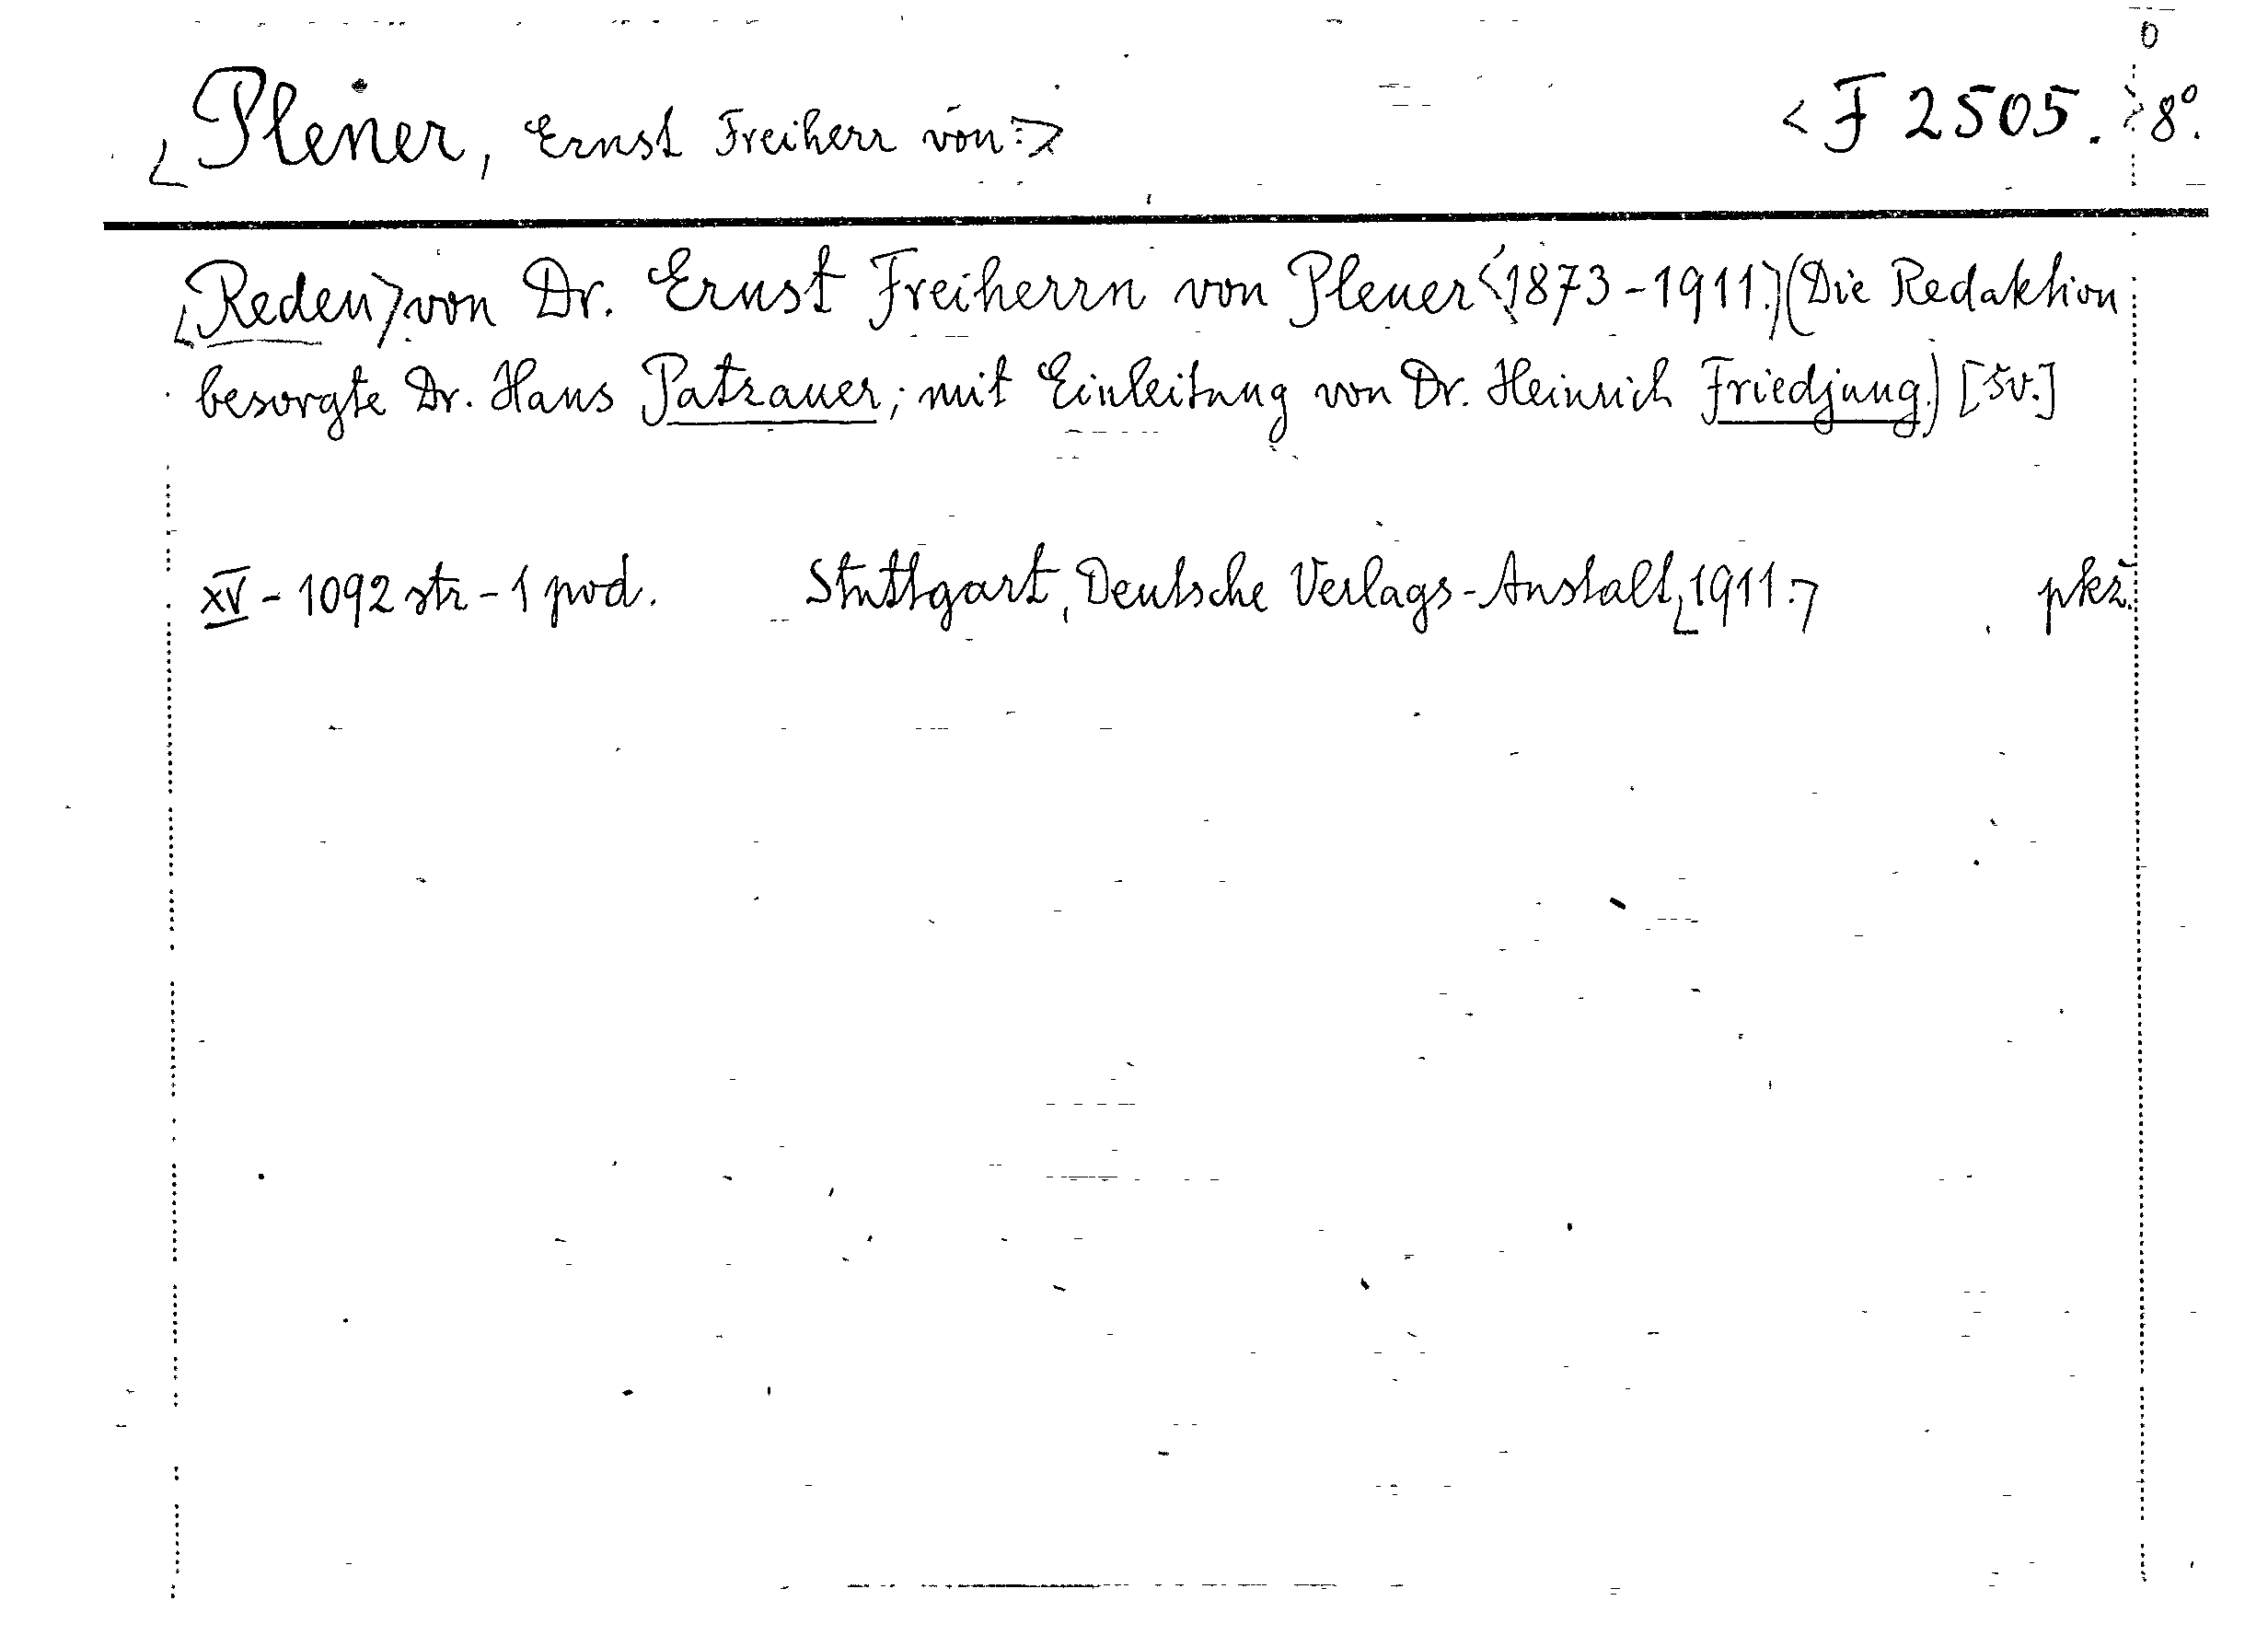 <Plener, Ernst Freiherr von:> <F 2505.> 8°.
<Reden> von Dr. Ernst Freiherrn von Plener <1873-1911.> (Die Redaktion
besorgte Dr. Hans Patzauer; mit Einleitung von Dr. Heinrich Friedjung.) [Sv.]
XV - 1092 str - 1 pod. Stuttgart, Deutsche Verlags-Anstalt, <1911.> pkž.